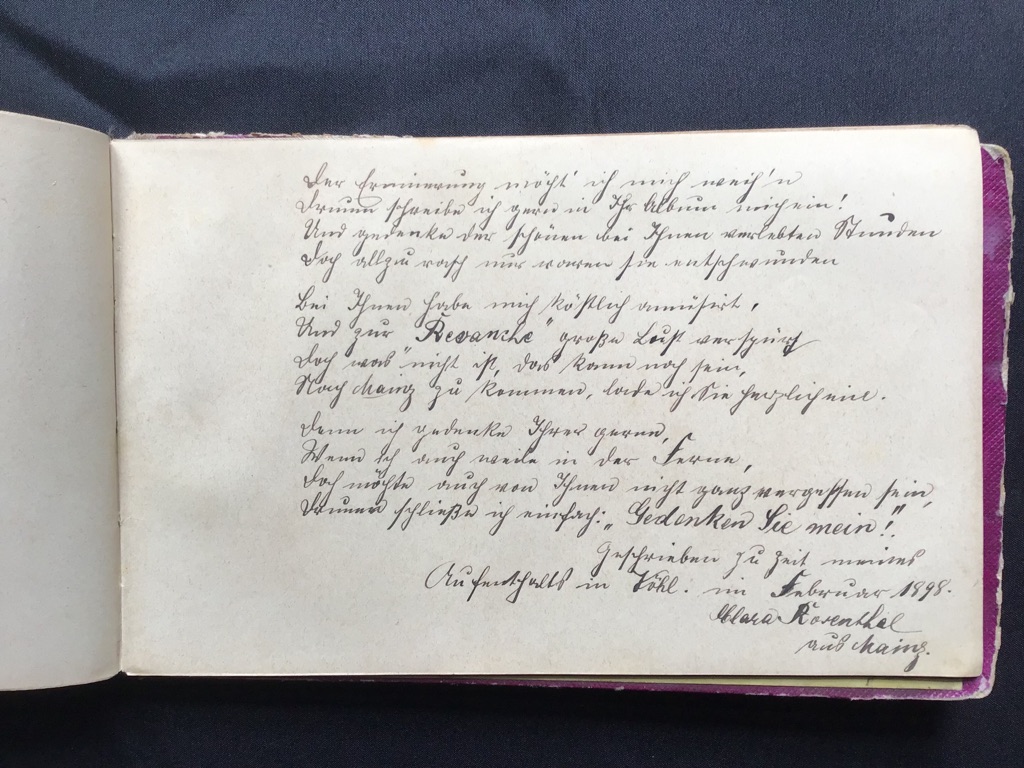 Der Erinnerung möcht' ich mich weih'n
Drumm schreibe ich gern in Ihr Album mich ein!
Und gedenke der schönen bei Ihnen verlebten Stunden
Doch allzu rasch nur waren sie entschwunden
Bei Ihnen habe mich köstlich amüsirt,
Und zur "Revanche" große Lust verspürt
Doch was nicht ist, das kann noch sein,
Nach Mainz zu kommen, lade ich Sie herzlich ein.
Denn ich gedenke Ihrer gerne,
Wenn ich auch weile in der Ferne,
Doch möchte auch von Ihnen nicht ganz vergessen sein,
Drumm schließe ich einfach: „Gedenken Sie mein!"
Geschrieben zu Zeit meines
Aufenthalts in Vöhl. im Februar 1898.
Clara Rosenthal
aus Mainz.